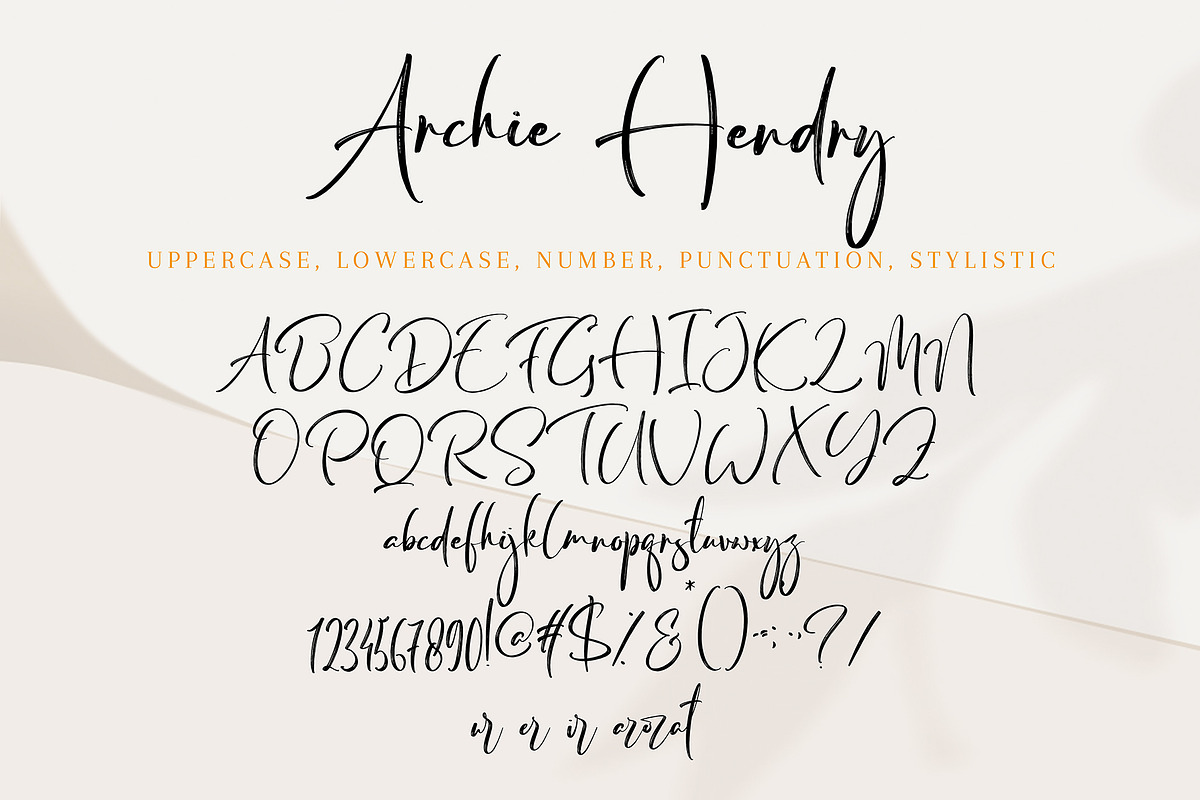 Archie Hendry
UPPERCASE, LOWERCASE, NUMBER, PUNCTUATION, STYLISTIC
ABCDEFGHIJKLMN
OPQRSTUVWXYZ
abcdefhijklmnopqrstuvwxyz
1234567890!@#$%&*()-=;:.,?/
ur er ir arorat